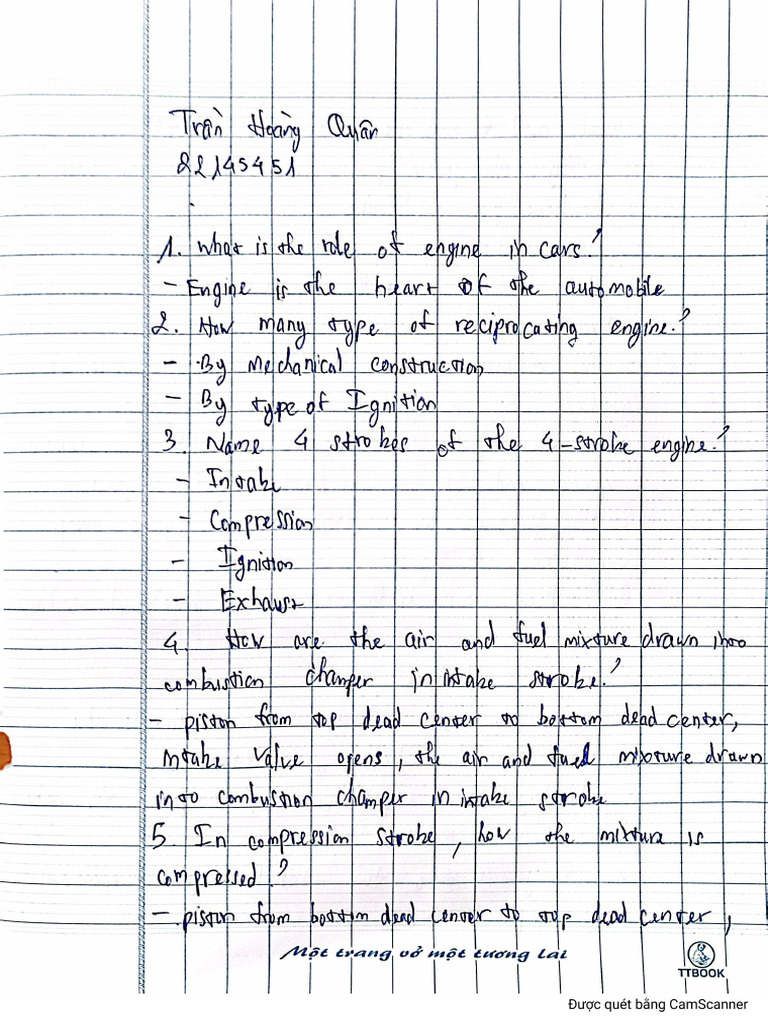 Trần Hoàng Quân
22145451
1. What is the role of engine in cars?
- Engine is the heart of the automobile
2. How many type of reciprocating engine?
- By Mechanical construction
- By type of Ignition
3. Name 4 strokes of the 4-stroke engine?
- Intake
- Compression
- Ignition
- Exhaust
4. How are the air and fuel mixture drawn into
combustion champer in intake stroke?
- piston from top dead center to bottom dead center,
intake valve opens, the air and fuel mixture drawn
into combustion champer in intake stroke
5. In compression stroke, how the mixture is
compressed?
- piston from bottom dead center to top dead center,
Một trang vở một tương lai
TTBOOK
Được quét bằng CamScanner